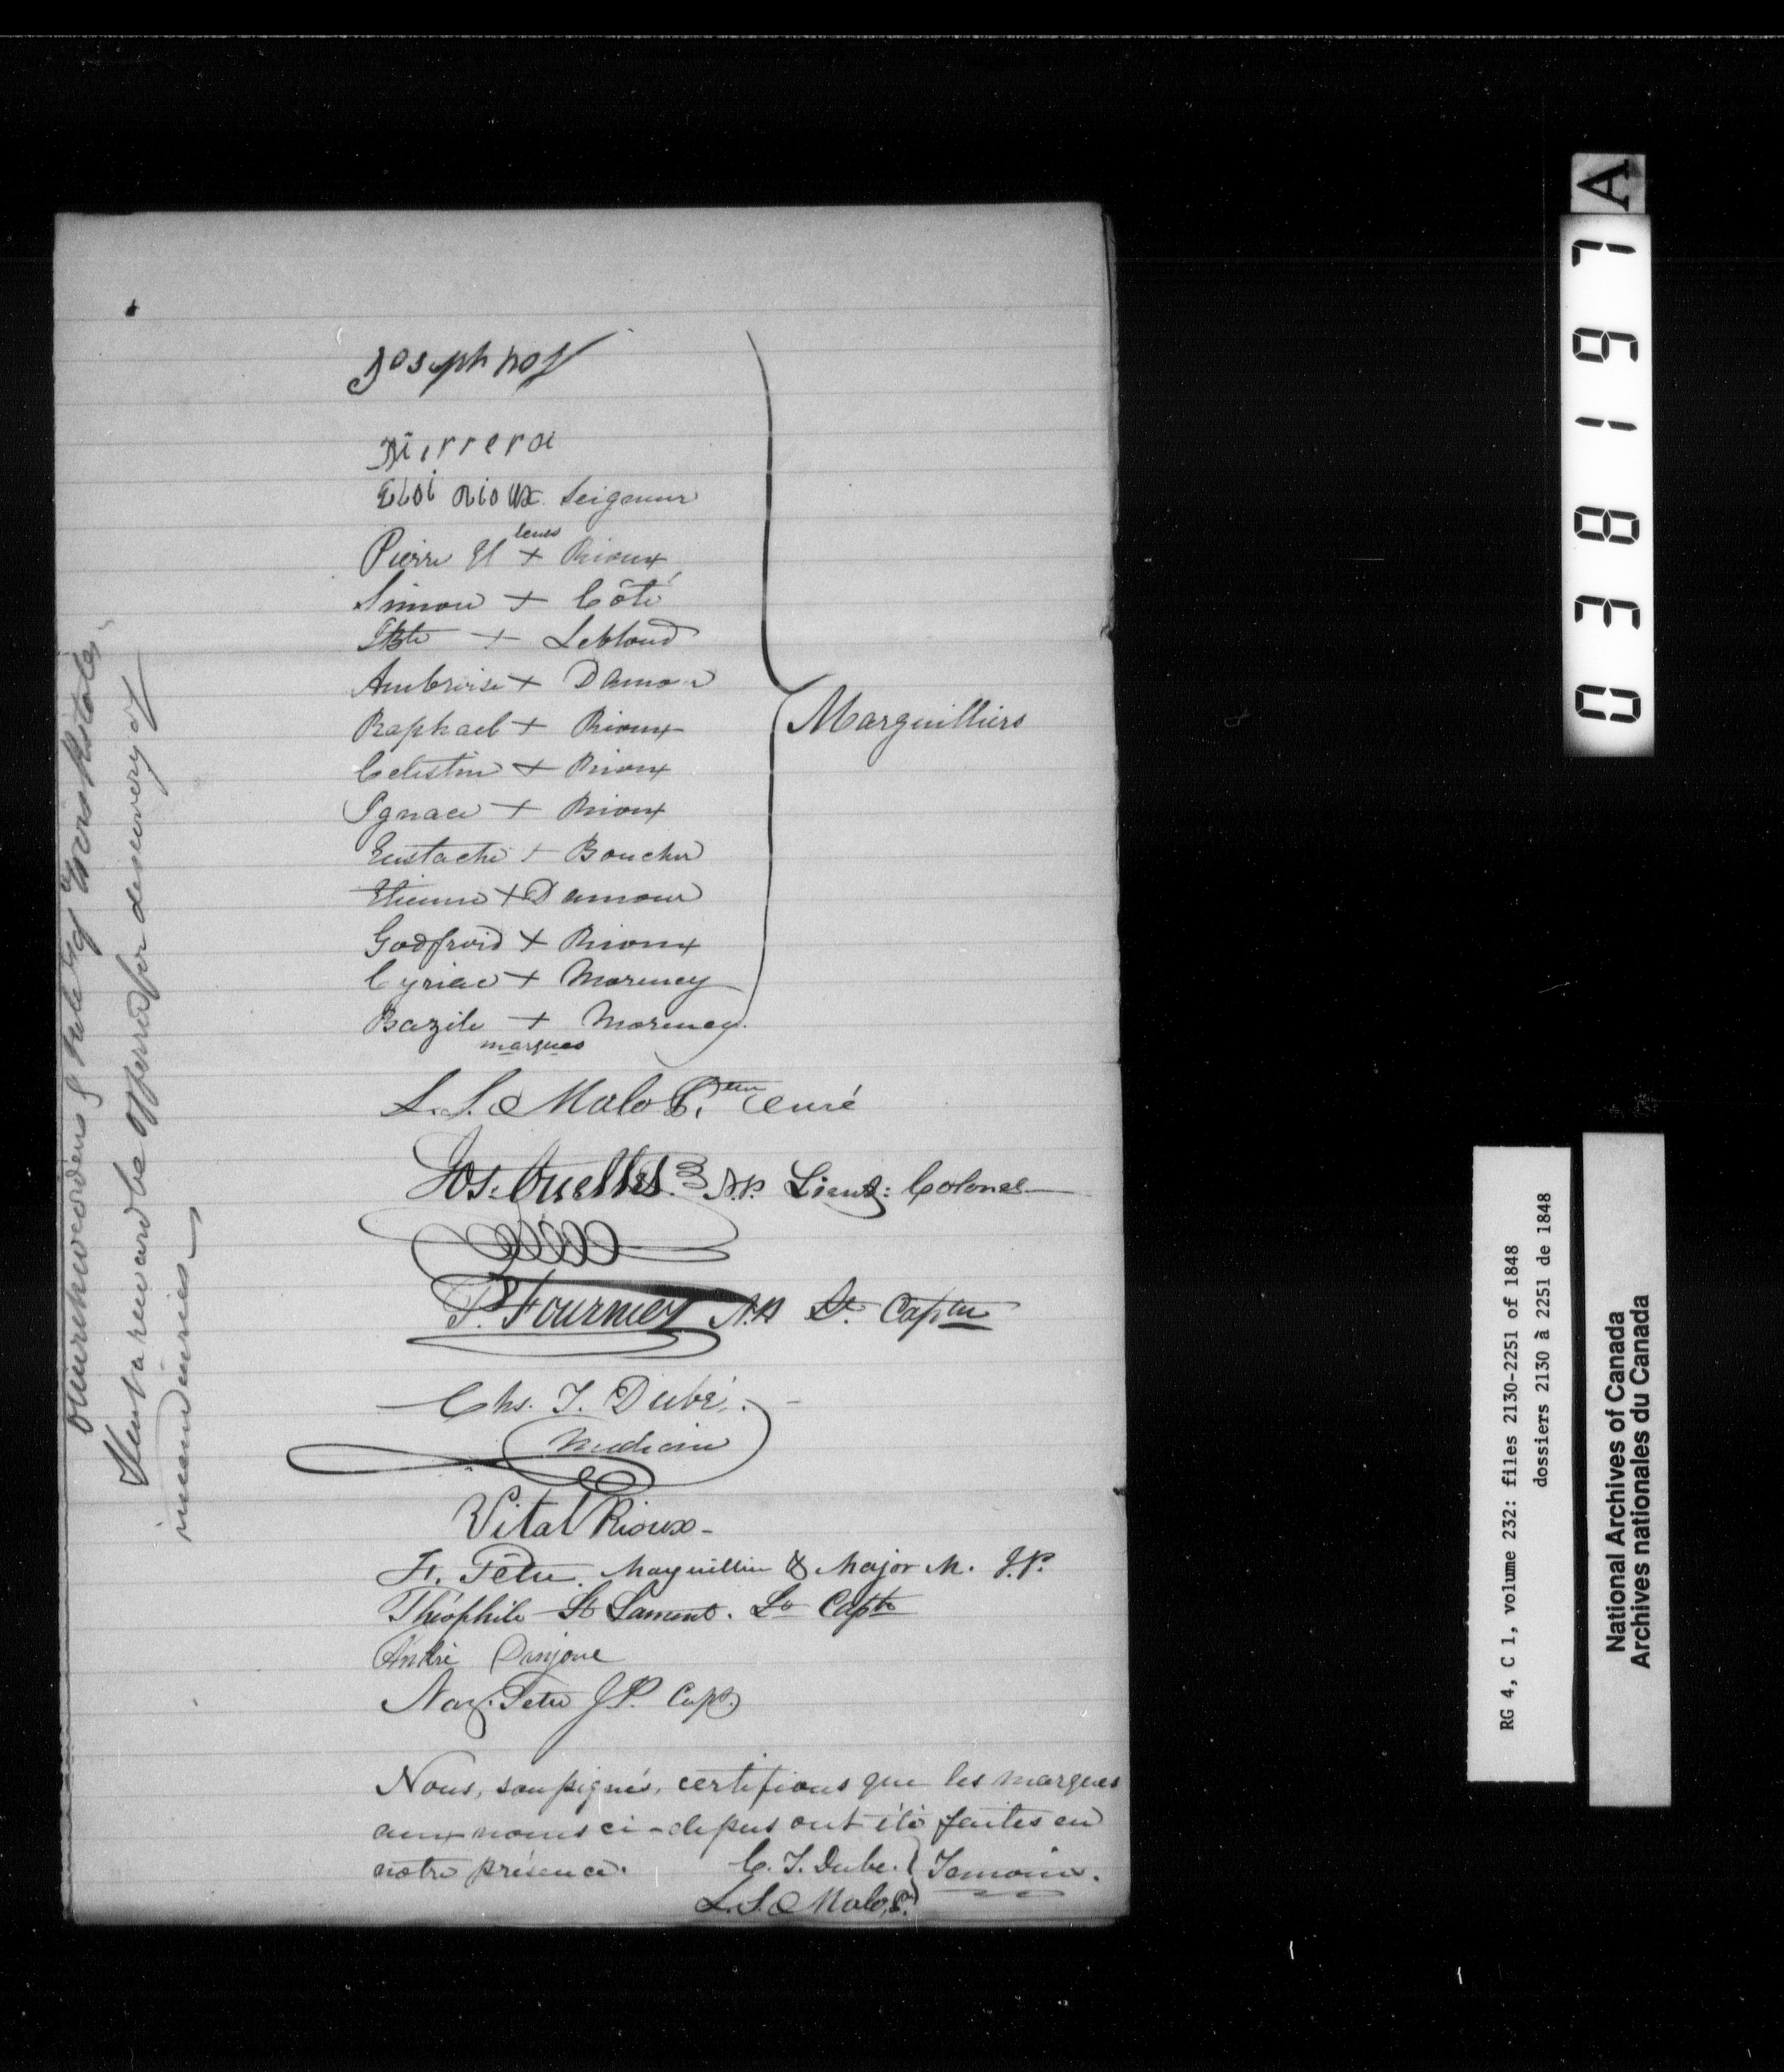 Joseph roy
Eloi rioux Seigneur
Pierre El + Rioux
leurs
Simon + Côté
Jbte + Leblond
Ambroise + Damour
Raphael + Rioux
Celestin + Rioux
Ignace + Rioux
Eustache + Boucher
Etienne + Damour
Godfroid + Rioux
Cyriac + Morency
Bazile + Morency.
marques
Marguilliers
L. S. Malo Ptre Curé
Jos. Ouellet N.P. Lieut: Colonel
P. Fournier N.P Lt Captn
Chs. T. Dubé.
Medecin
Vital Rioux-
Ft. Têtu. Marguillier & Major M. J.P.
Théophile St Lament. Lt Captn
André Danjoue
Naz. Tetu J.P. Capt.
Nous, soussignés, certifions que les marques
aux noms ci-dessus ont été faites en
notre présence. C. T. Dube. } Temoins.
L. S. Malo, P.
& sale of
that a reward be offered for discovery of
incendiaries
0 3 8 1 9 7 A
RG 4, C 1, volume 232: files 2130-2251 of 1848
dossiers 2130 à 2251 de 1848
National Archives of Canada
Archives nationales du Canada